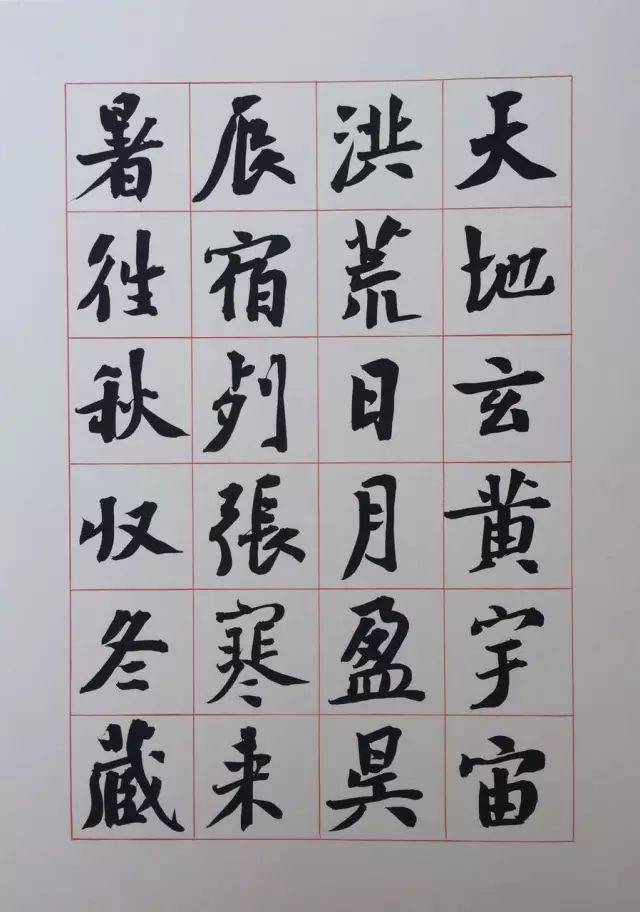 天地玄黄宇宙
洪荒日月盈昃
辰宿列張寒来
暑往秋収冬蔵